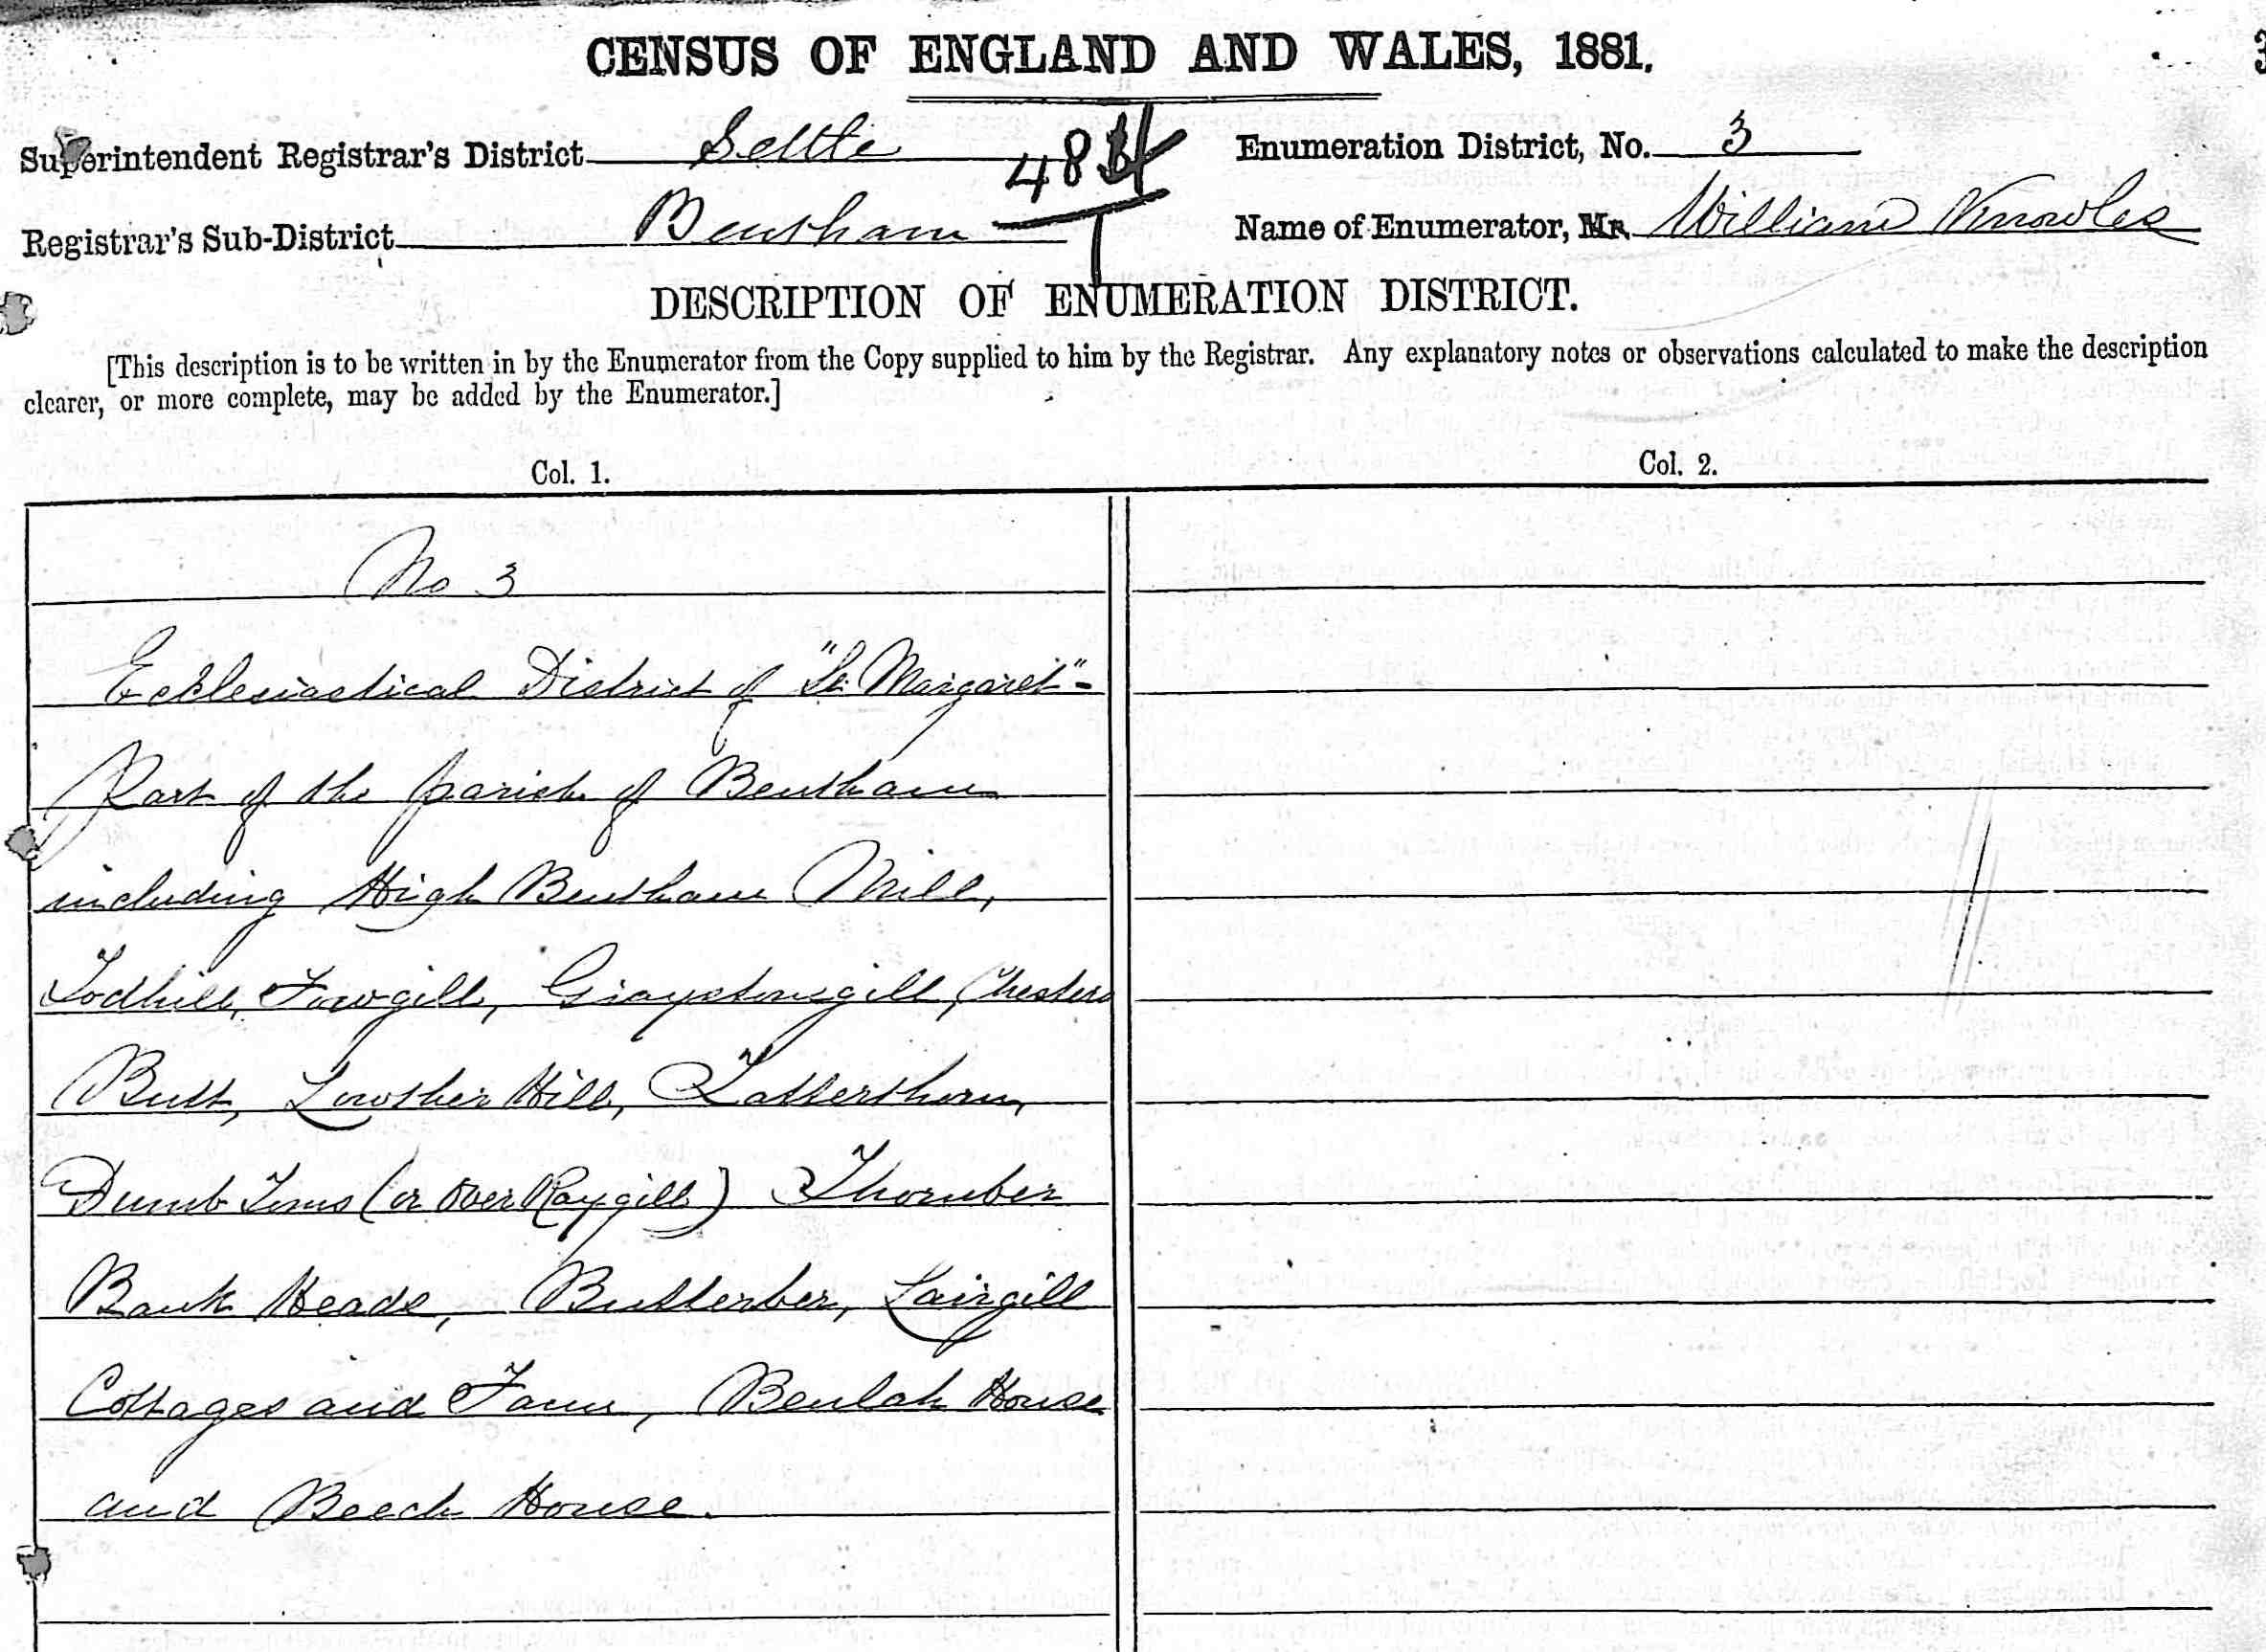 CENSUS OF ENGLAND AND WALES, 1881.
Superintendent Registrar's District Settle
Enumeration District, No. 3
Registrar's Sub-District Bentham
Name of Enumerator, Mr. William Knowles
DESCRIPTION OF ENUMERATION DISTRICT.
[This description is to be written in by the Enumerator from the Copy supplied to him by the Registrar. Any explanatory notes or observations calculated to make the description
clearer, or more complete, may be added by the Enumerator.]
Col. 1.
Col. 2.
No 3
Ecclesiastical District of "St. Margaret"-
Part of the parish of Bentham
including High Bentham Mill,
Todhill, Fowgill, Graystonegill, Chesters
Butt, Lowther Hill, Tatterthorn,
Dumb Toms (or Over Raygill) Thornber
Bank Heads, Butterber, Lairgill
Cottages and Farm, Beulah House
and Beech House.